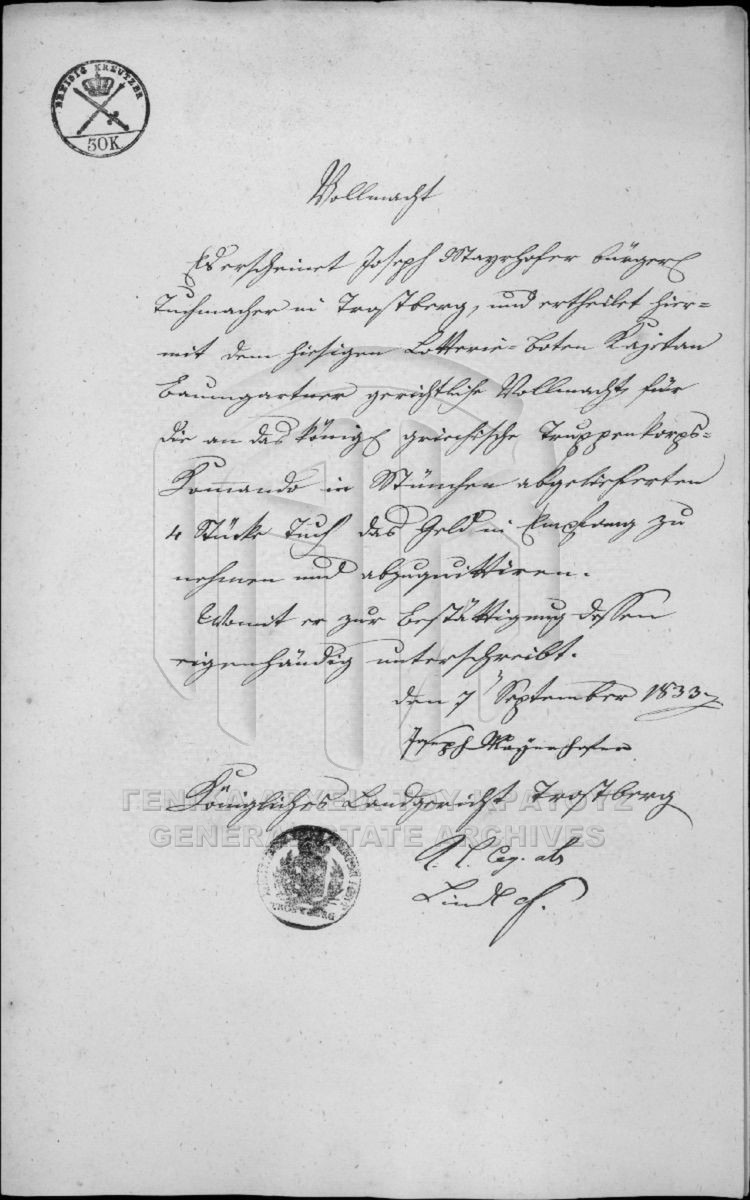 DREISIG KREUTZER
30K
Vollmacht
Es erscheinet Joseph Mayrhofer bürgerl
Tuchmacher in Trostberg, und ertheilet hier=
mit dem hiesigen Lotterie=Boten Kajetan
Baumgartner gerichtliche Vollmacht, für
die an das königl griechische Truppenkorps=
Kommando in München abgelieferten
4 Stücke Tuch das Geld in Empfang zu
nehmen und abzuquittiren.
Womit er zur Bestättigung dessen
eigenhändig unterschreibt.
den 7 September 1833
Joseph Mayerhofer
Königliches Landgericht Trostberg
ΓΕΝΙΚΑ ΑΡΧΕΙΑ ΤΟΥ ΚΡΑΤΟΥΣ
GENERAL STATE ARCHIVES
TROSTBERG
Lindl